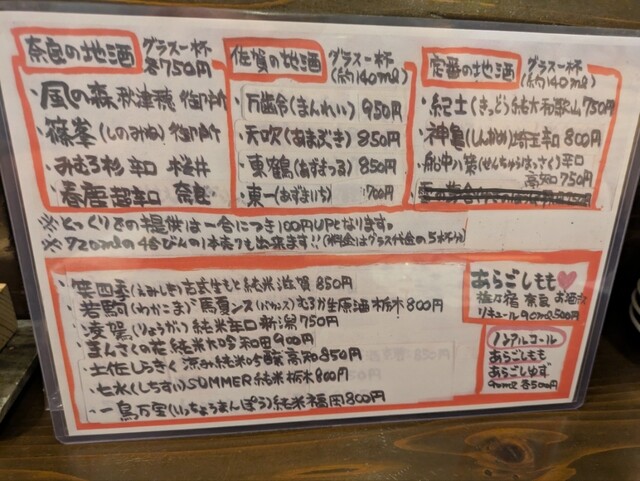 奈良の地酒 グラス一杯 各750円
・風の森 秋津穂 御所
・篠峯(しのみね)御所
・みむろ杉 辛口 桜井
・春鹿 超辛口 奈良
佐賀の地酒 グラス一杯 (約140ml)
・万齢(まんれい) 950円
・天吹(あまぶき) 850円
・東鶴(あずまつる) 850円
・東一(あずまいち) 700円
定番の地酒 グラス一杯 (約140ml)
・紀土(きっど)純大和歌山 750円
・神亀(しんかめ)埼玉辛口 800円
・船中八策(せんちゅうはっさく)辛口
高知 750円
※とっくりでの提供は一合につき100円UPとなります。
※720mlの4合びんの1本売りも出来ます!!(料金はグラス代金の5杯分)
・笑四季(えみしき)生もと純米 滋賀 850円
・若駒(わかこま)夏ンス(バカンス)むろか生原酒 栃木 800円
・凌駕(りょうがつ)純米辛口 新潟 750円
・まんさくの花 純米 900円
・土佐しらぎく 涼み純米吟醸 高知 850円
・七水(しちすい)SUMMER 純米 栃木 800円
・一鳥万宝(いっちょうまんぽう)純米 福岡 800円
あらごしもも♥
梅乃宿 奈良 お酒
リキュール 90ml 500円
ノンアルコール
あらごしもも
あらごしゆず
90ml 各500円